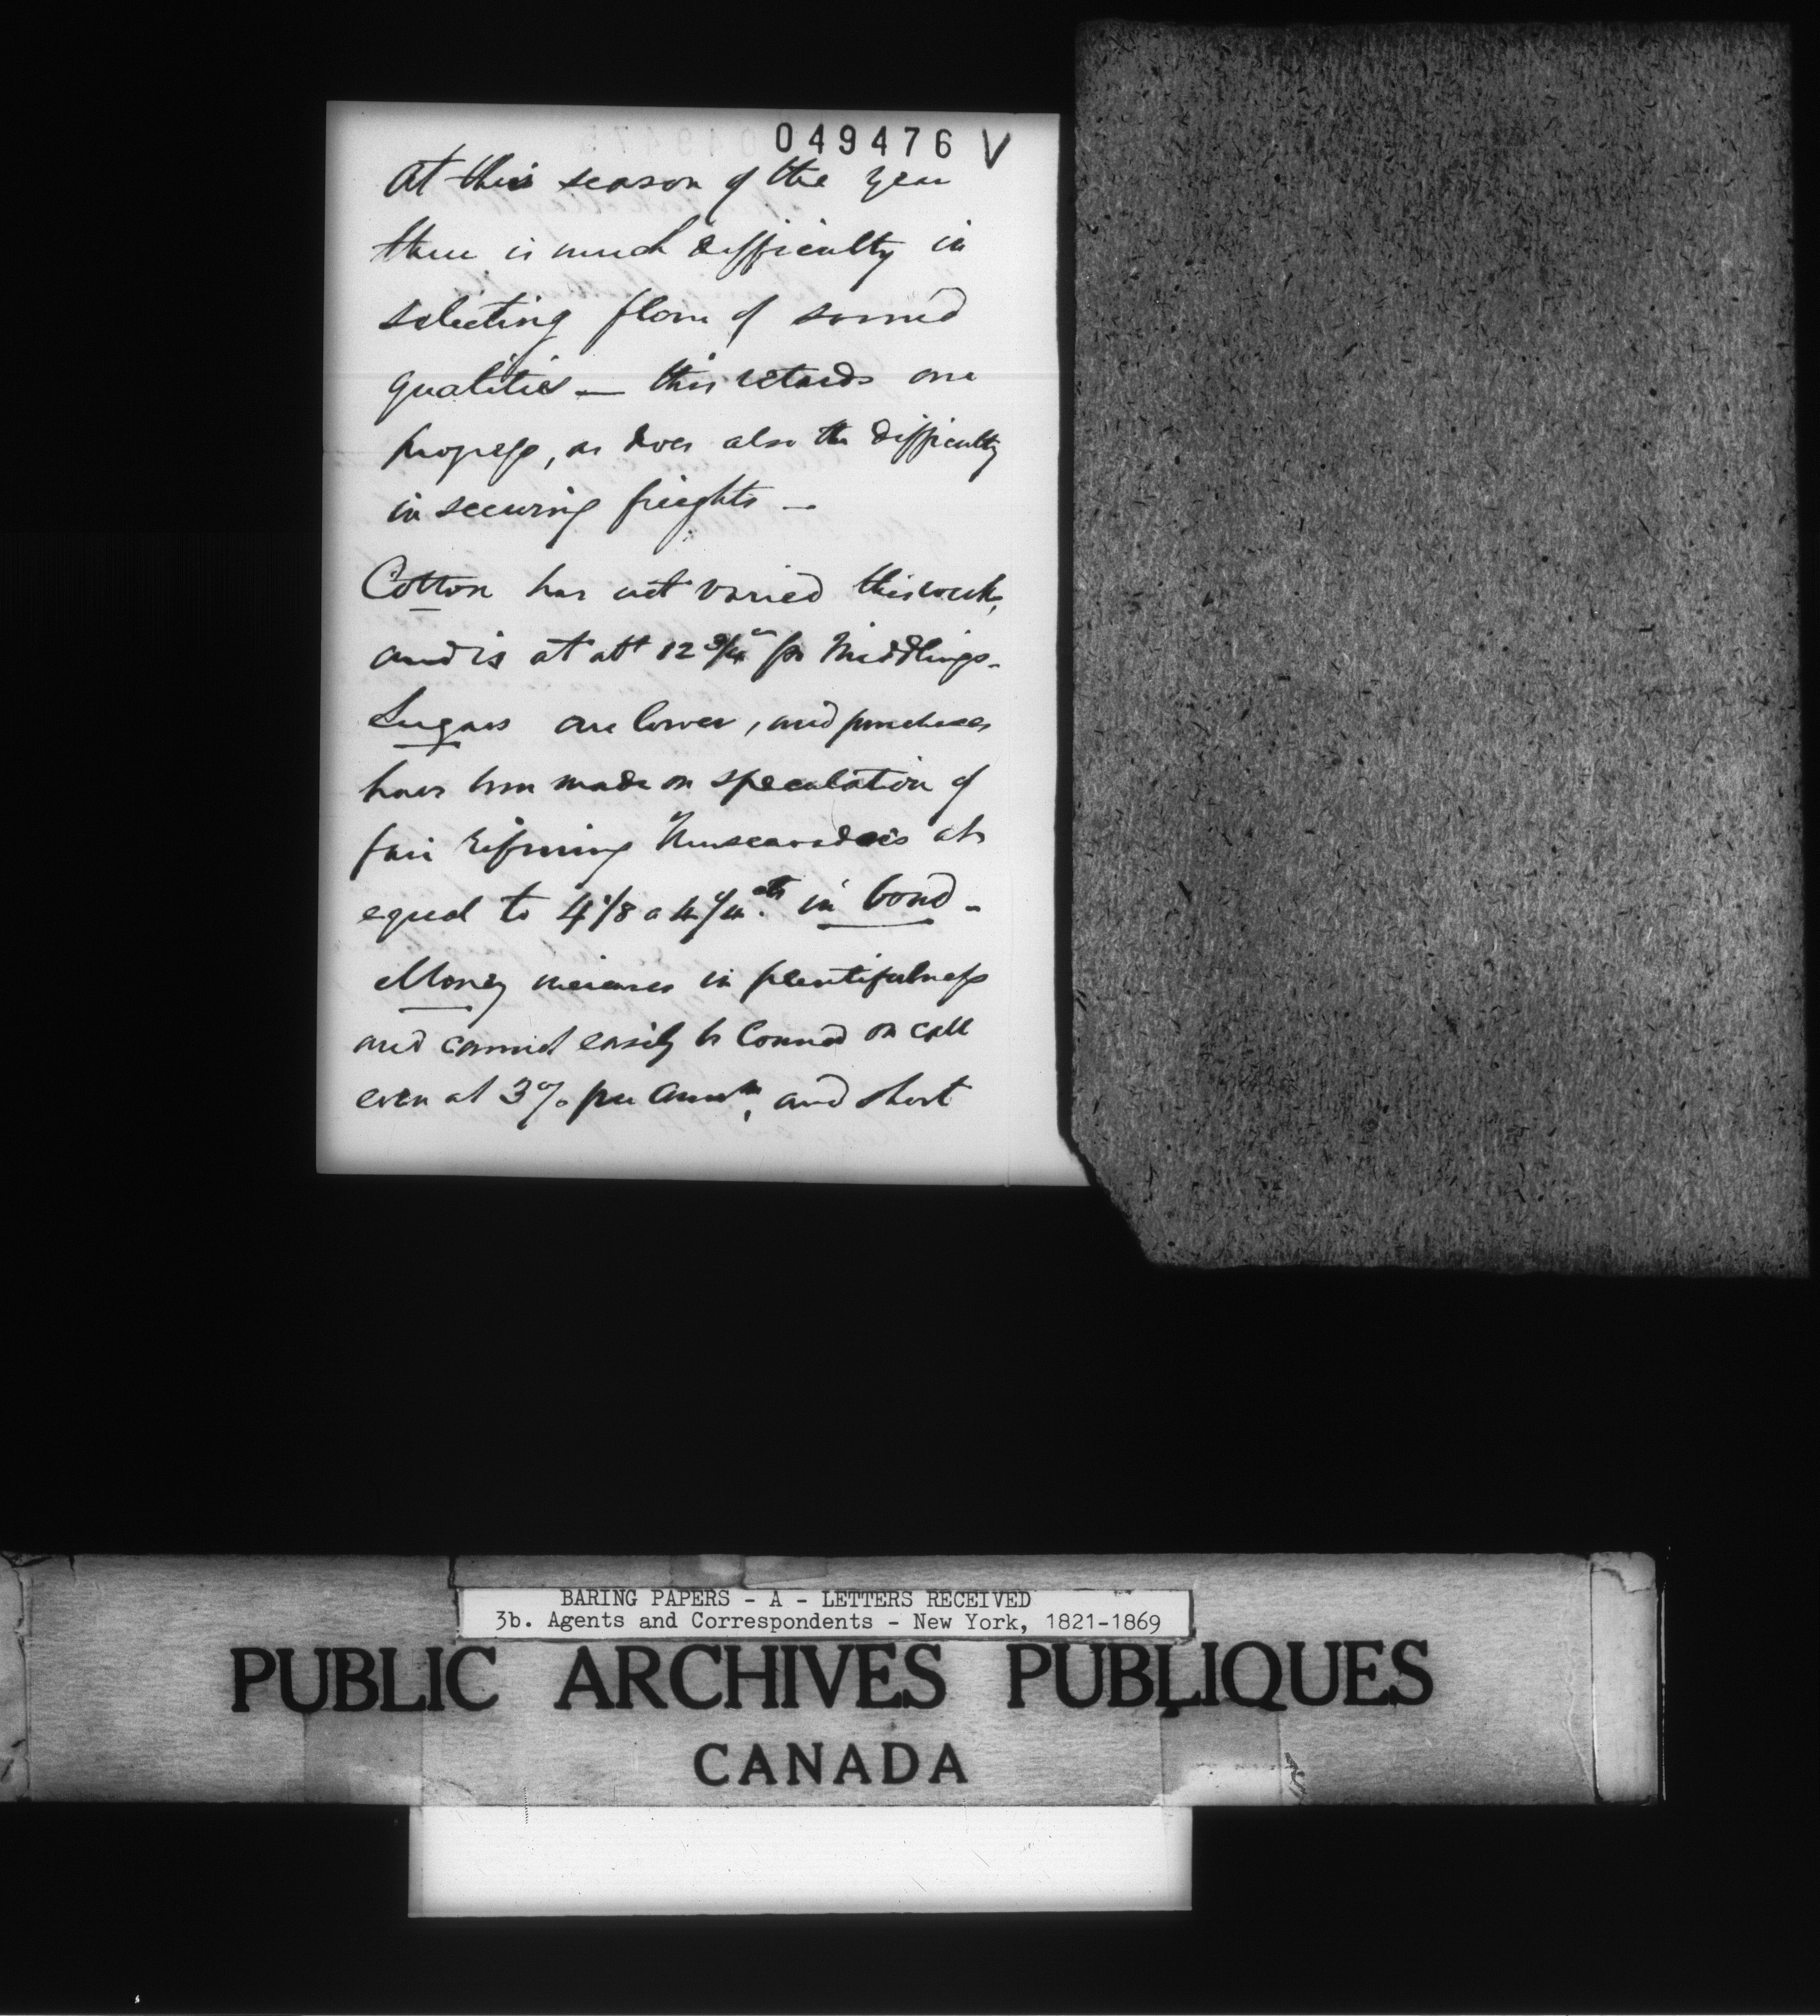 049476 V
At this season of the year
there is much difficulty in
selecting flour of sound
qualities — this retards our
progress, as does also the difficulty
in securing freights —
Cotton has not varied this week,
and is at abt 12 3/4 c for Middlings -
Sugars are lower, and purchases
have been made on speculation of
fair refining Muscavadoes at
equal to 4 1/8 a 4 1/4 cts in bond -
Money increases in plentifulness
and cannot easily be loaned on call
even at 3% per annm, and short
BARING PAPERS - A - LETTERS RECEIVED
3b. Agents and Correspondents - New York, 1821-1869
PUBLIC ARCHIVES PUBLIQUES
CANADA